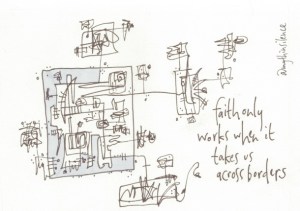 @nakedpastor
faith only
works when it
takes us
across borders